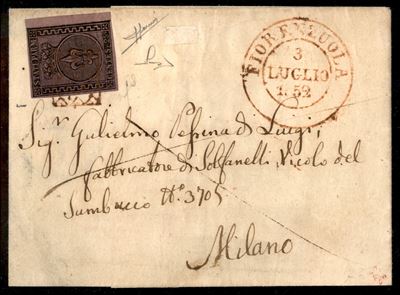 FIORENZUOLA
3
LUGLIO
1852
Sig.r Gulielmo Pessina di Luigi,
Fabbricatore di Solfanelli, Vicolo del
Sambuco N.o 3705
Milano